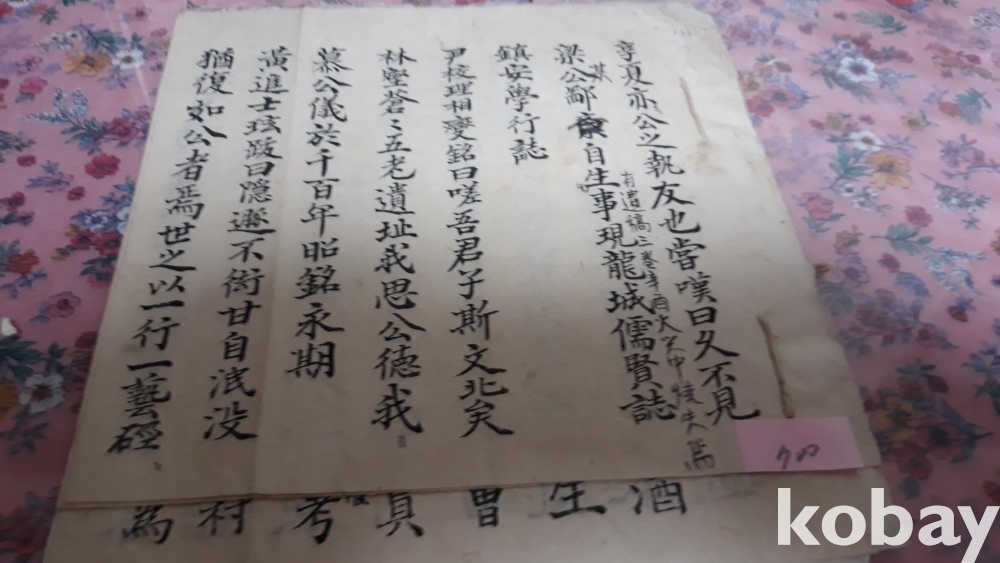 享夏亦公之執友也當嘆曰久不見
梁公鄙萁自生事現龍城儒賢誌
有遺稿三卷辛酉火中失焉
鎮安學行誌
尹校理相變銘曰嗟吾君子斯文北矣
林壑蒼〻五老遺址我思公德我
慕公儀於千百年昭銘永期
黃進士玹跋曰隱遯不衒甘自泯没
猶復如公者焉世之以一行一藝硜
酒
生
曾
真
考
村
為
700
kobay